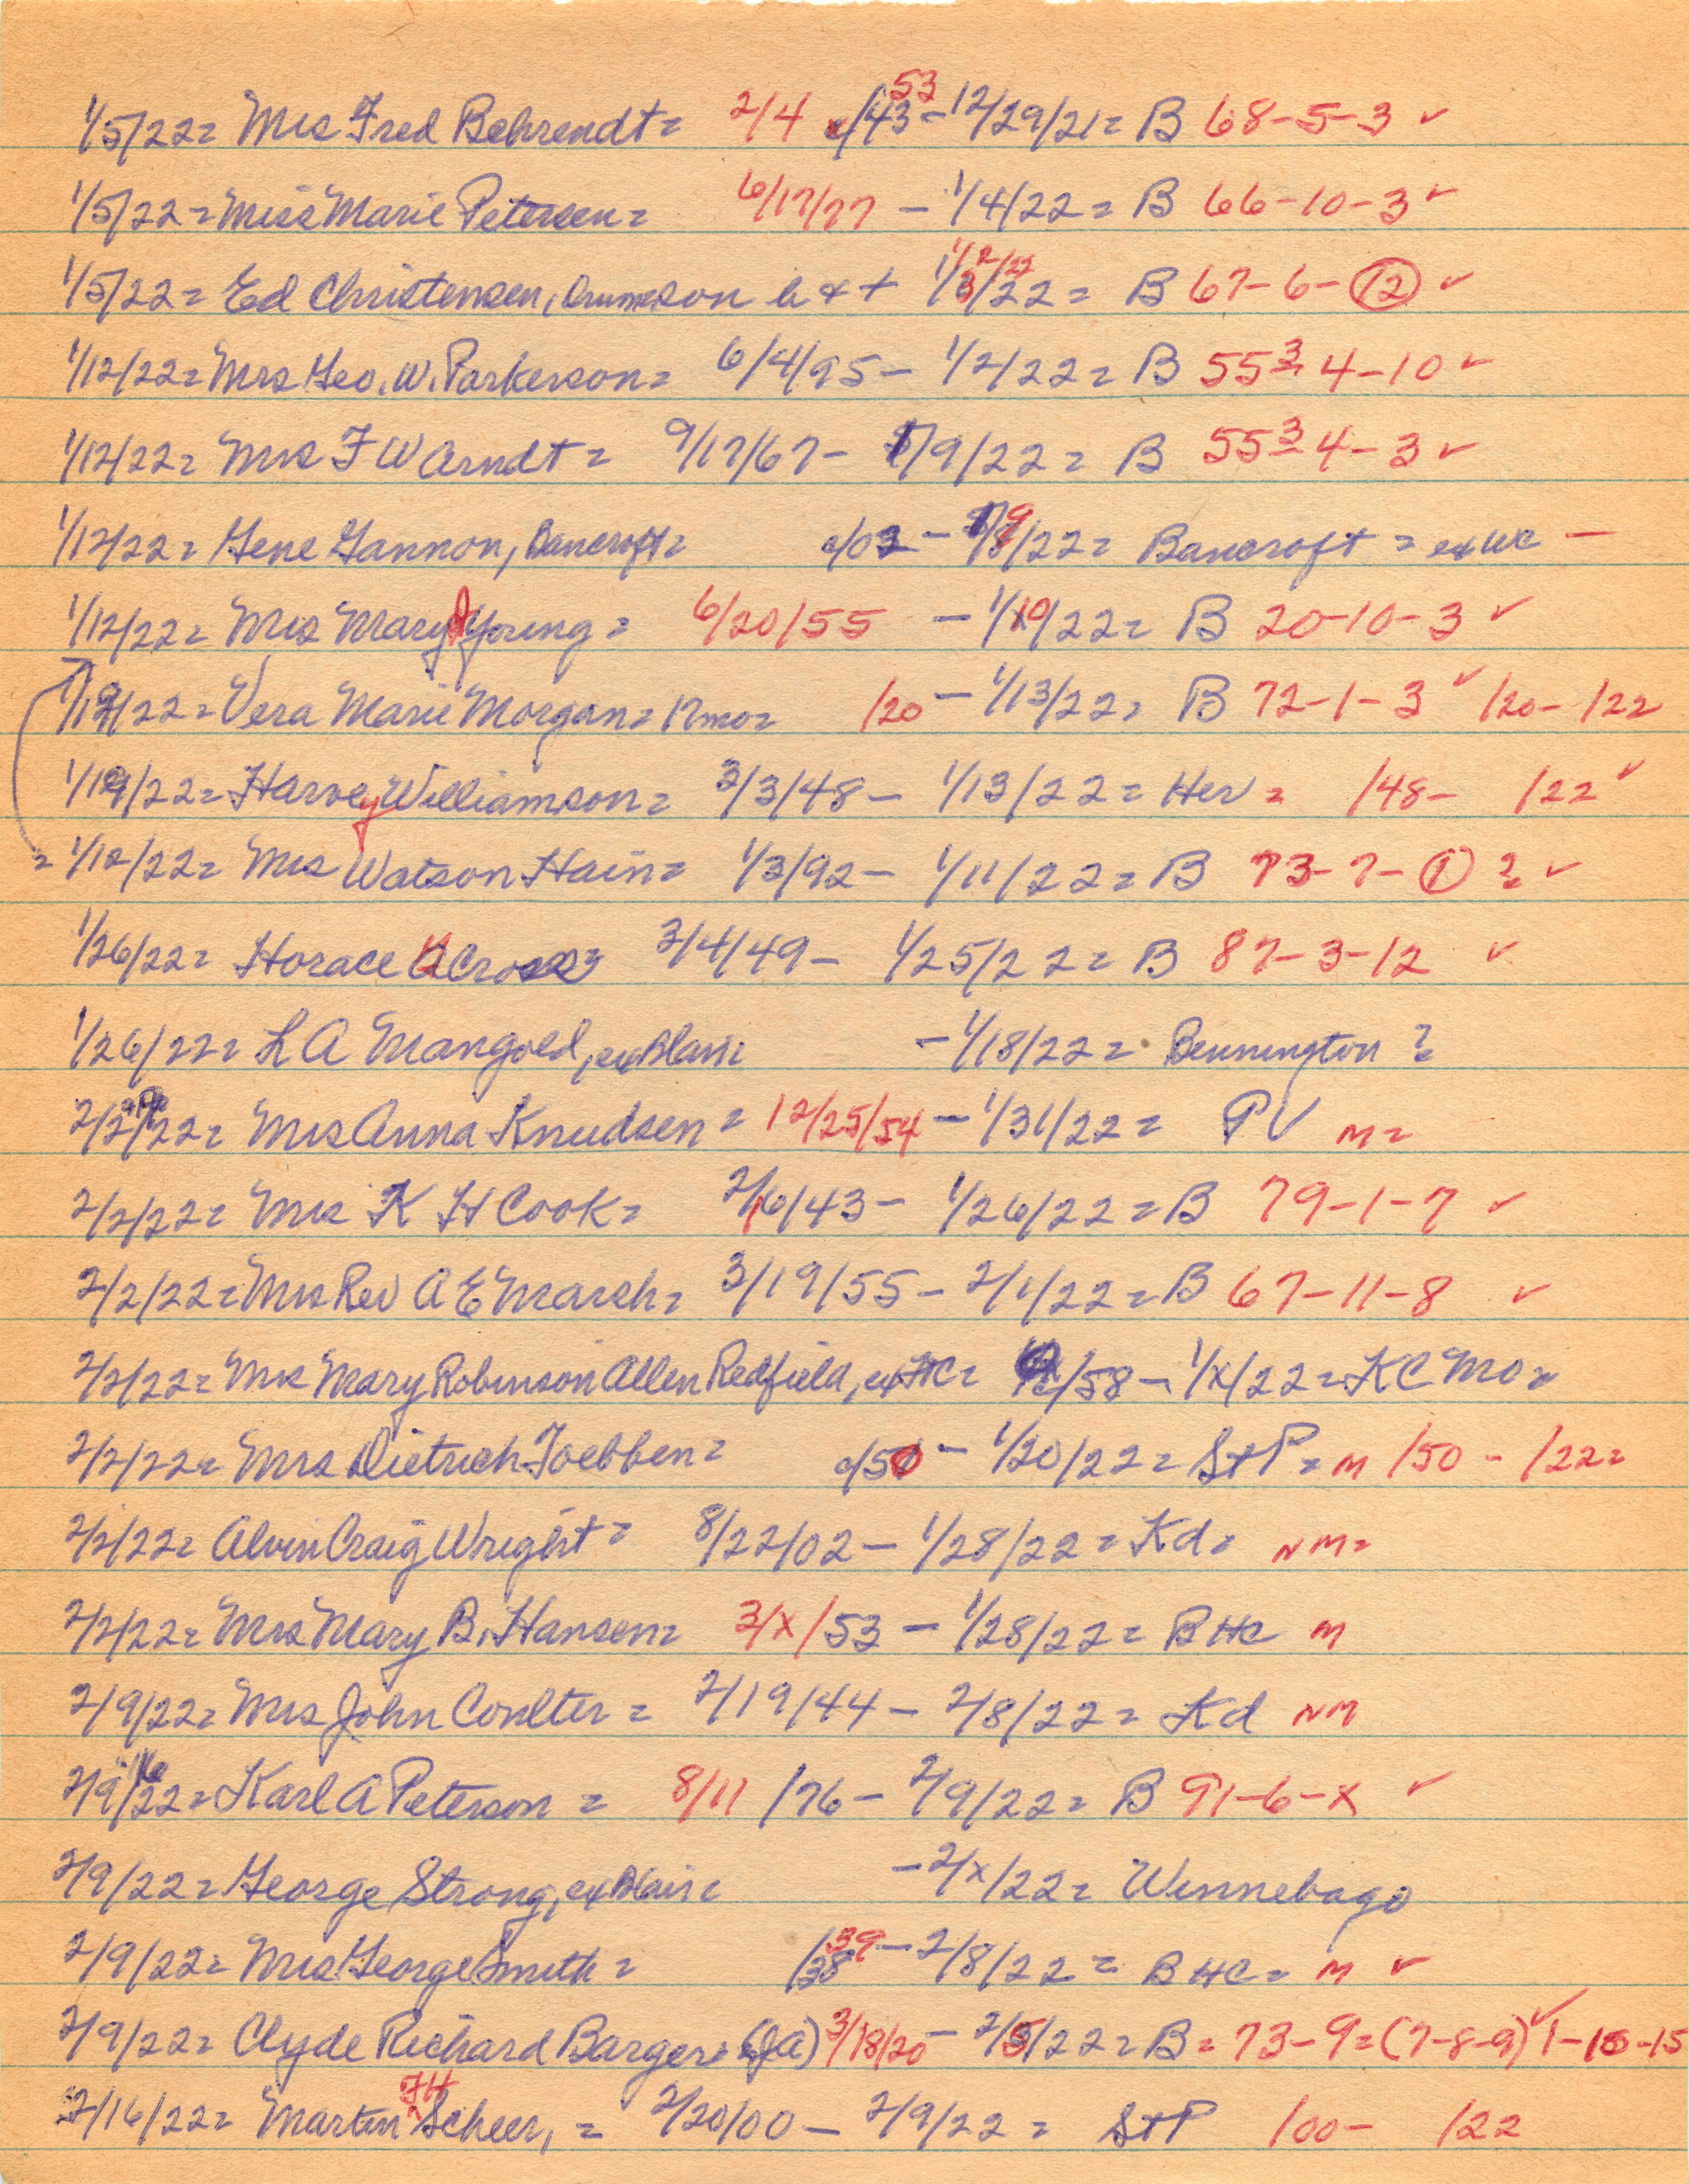 1/5/22= Mrs Fred Behrendt= 2/4 c/43 53 - 12/29/21= B 68-5-3 ✓
1/5/22= Miss Marie Petersen= 6/17/77 - 1/4/22= B 66-10-3 ✓
1/5/22= Ed Christensen, son b & + 1/3/22 1/2/22 = B 67-6-12 ✓
1/12/22= Mrs Geo. W. Parkerson= 6/4/95 - 1/2/22= B 55 3 - 4-10 ✓
1/12/22= Mrs F W Arndt= 9/17/67 - 1/9/22= B 55 3 - 4-3 ✓
1/12/22= Gene Gannon, Bancroft= c/02 - 1/9/22= Bancroft = ex WC -
1/12/22= Mrs Mary J Young= 6/20/55 - 1/10/22= B 20-10-3 ✓
1/19/22= Vera Marie Morgan= 17mo= /20 - 1/13/22= B 72-1-3 ✓ /20- /22
1/19/22= Harvey Williamson= 3/3/48 - 1/13/22= Her = /48- /22 ✓
= 1/12/22= Mrs Watson Hain= 1/3/92 - 1/11/22= B 73-7-1 ? ✓
1/26/22= Horace A Cross= 3/4/49 - 1/25/22= B 87-3-12 ✓
1/26/22= L A Mangold, ex Blair= - 1/18/22= Bennington ?
2/2/22= Mrs Anna Knudsen= 12/25/54 - 1/31/22= PV M=
2/2/22= Mrs K H Cook= 2/6/43 - 1/26/22= B 79-1-7 ✓
2/2/22= Mrs Rev A E Marsh= 3/19/55 - 2/1/22= B 67-11-8 ✓
2/2/22= Mrs Mary Robinson Allen Redfield, ex HC= c/58 - 1/x/22= KC Mo=
2/2/22= Mrs Dietrich Toebben= c/50 - 1/20/22= StP= M /50 - /22=
2/2/22= Alvin Craig Wright= 8/22/02 - 1/28/22= Kd= NM=
2/2/22= Mrs Mary B. Hansen= 3/x/53 - 1/28/22= B HC M
2/9/22= Mrs John Coulter= 2/19/44 - 2/8/22= Kd NM
2/9/22= Karl A Peterson= 8/11/76 - 2/9/22= B 91-6-x ✓
2/9/22= George Strong, ex Blair= - 2/x/22= Winnebago
2/9/22= Mrs George Smith= /38 39 - 2/8/22= B HC= M ✓
2/9/22= Clyde Richard Barger= (Ja) 3/18/20 - 2/5/22= B= 73-9=(7-8-9) ✓ 1-10-15
2/16/22= Martin FH Scheer, = 2/20/00 - 2/9/22= StP /00- /22